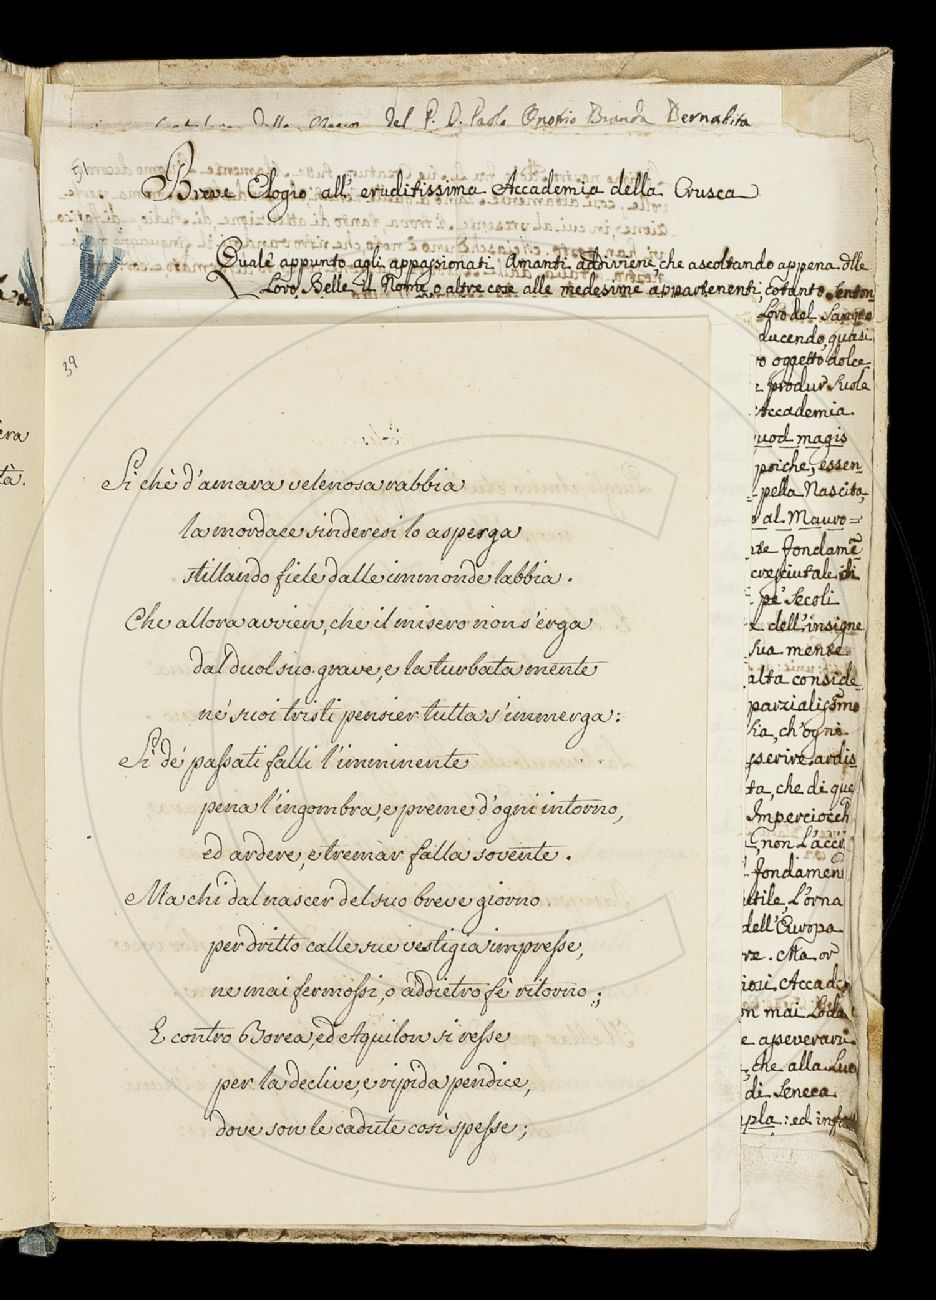 del P. D. Paolo Onofrio Branda Bernabita
51
Breve Elogio all' eruditissima Accademia della Crusca
Quale appunto agli appassionati Amanti addiviene, che ascoltando appena dlle
Loro Belle il Nome, o altre cose alle medesime appartenenti, totanto senton
Loro del Sangue
ducendo, quasi
ro oggetto dolce
e produr Suola
Accademia
quod magis
poiche, essen
pella Nascita,
o al Mauro=
fondamē
cresciutale di
pe' Secoli
e dell'insigne
sua mente
alta conside
parzialissimo
sia, ch'ogni
sserire ardis
ta, che di que
Imperciocch
non L'acci
fondamen
utile, L'orna
dell'Europa
re. Ma or
iosi Accad
on mai Loda
e asseverari
, che alla Luo
di Seneca
mpla: ed infatt
era
tà.
39
Si chè d'amara velenosa rabbia
la mordace sinderesi lo asperga
stillando fiele dalle immonde labbia.
Che allora avvien, che il misero non s'erga
dal duol suo grave, e la turbata mente
ne' suoi tristi pensier tutta s'immerga:
Sì de' passati falli l'imminente
pena l'ingombra, e preme d'ogni intorno,
ed ardere, e tremar falla sovente.
Ma chi dal nascer del suo breve giorno
per dritto calle sue vestigia impresse,
ne mai fermossi, o addietro fè ritorno;
E contro Borea, ed Aquilon si resse
per la declive, e ripida pendice,
dove son le cadute così spesse;